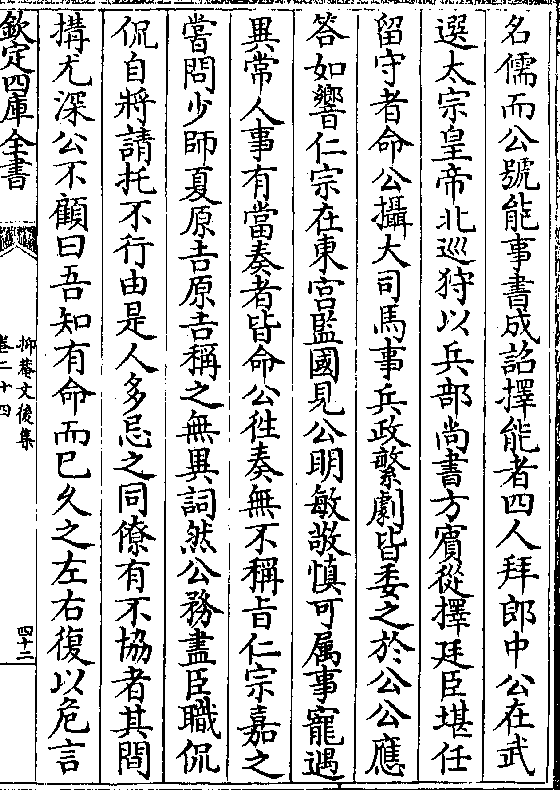 名儒而公號能事書成詔擇能者四人拜郎中公在武
選太宗皇帝北巡狩以兵部尚書方賓從擇廷臣堪任
留守者命公攝大司馬事兵政繁劇皆委之於公公應
答如響仁宗在東宮監國見公明敏敬慎可属事寵遇
異常人事有當奏者皆命公徃奏無不稱旨仁宗嘉之
嘗問少師夏原吉原吉稱之無異詞然公務盡臣職侃
侃自將請托不行由是人多忌之同僚有不協者其間
搆尤深公不顧曰吾知有命而已久之左右復以危言
欽定四庫全書
抑菴文後集
卷二十四
四十二